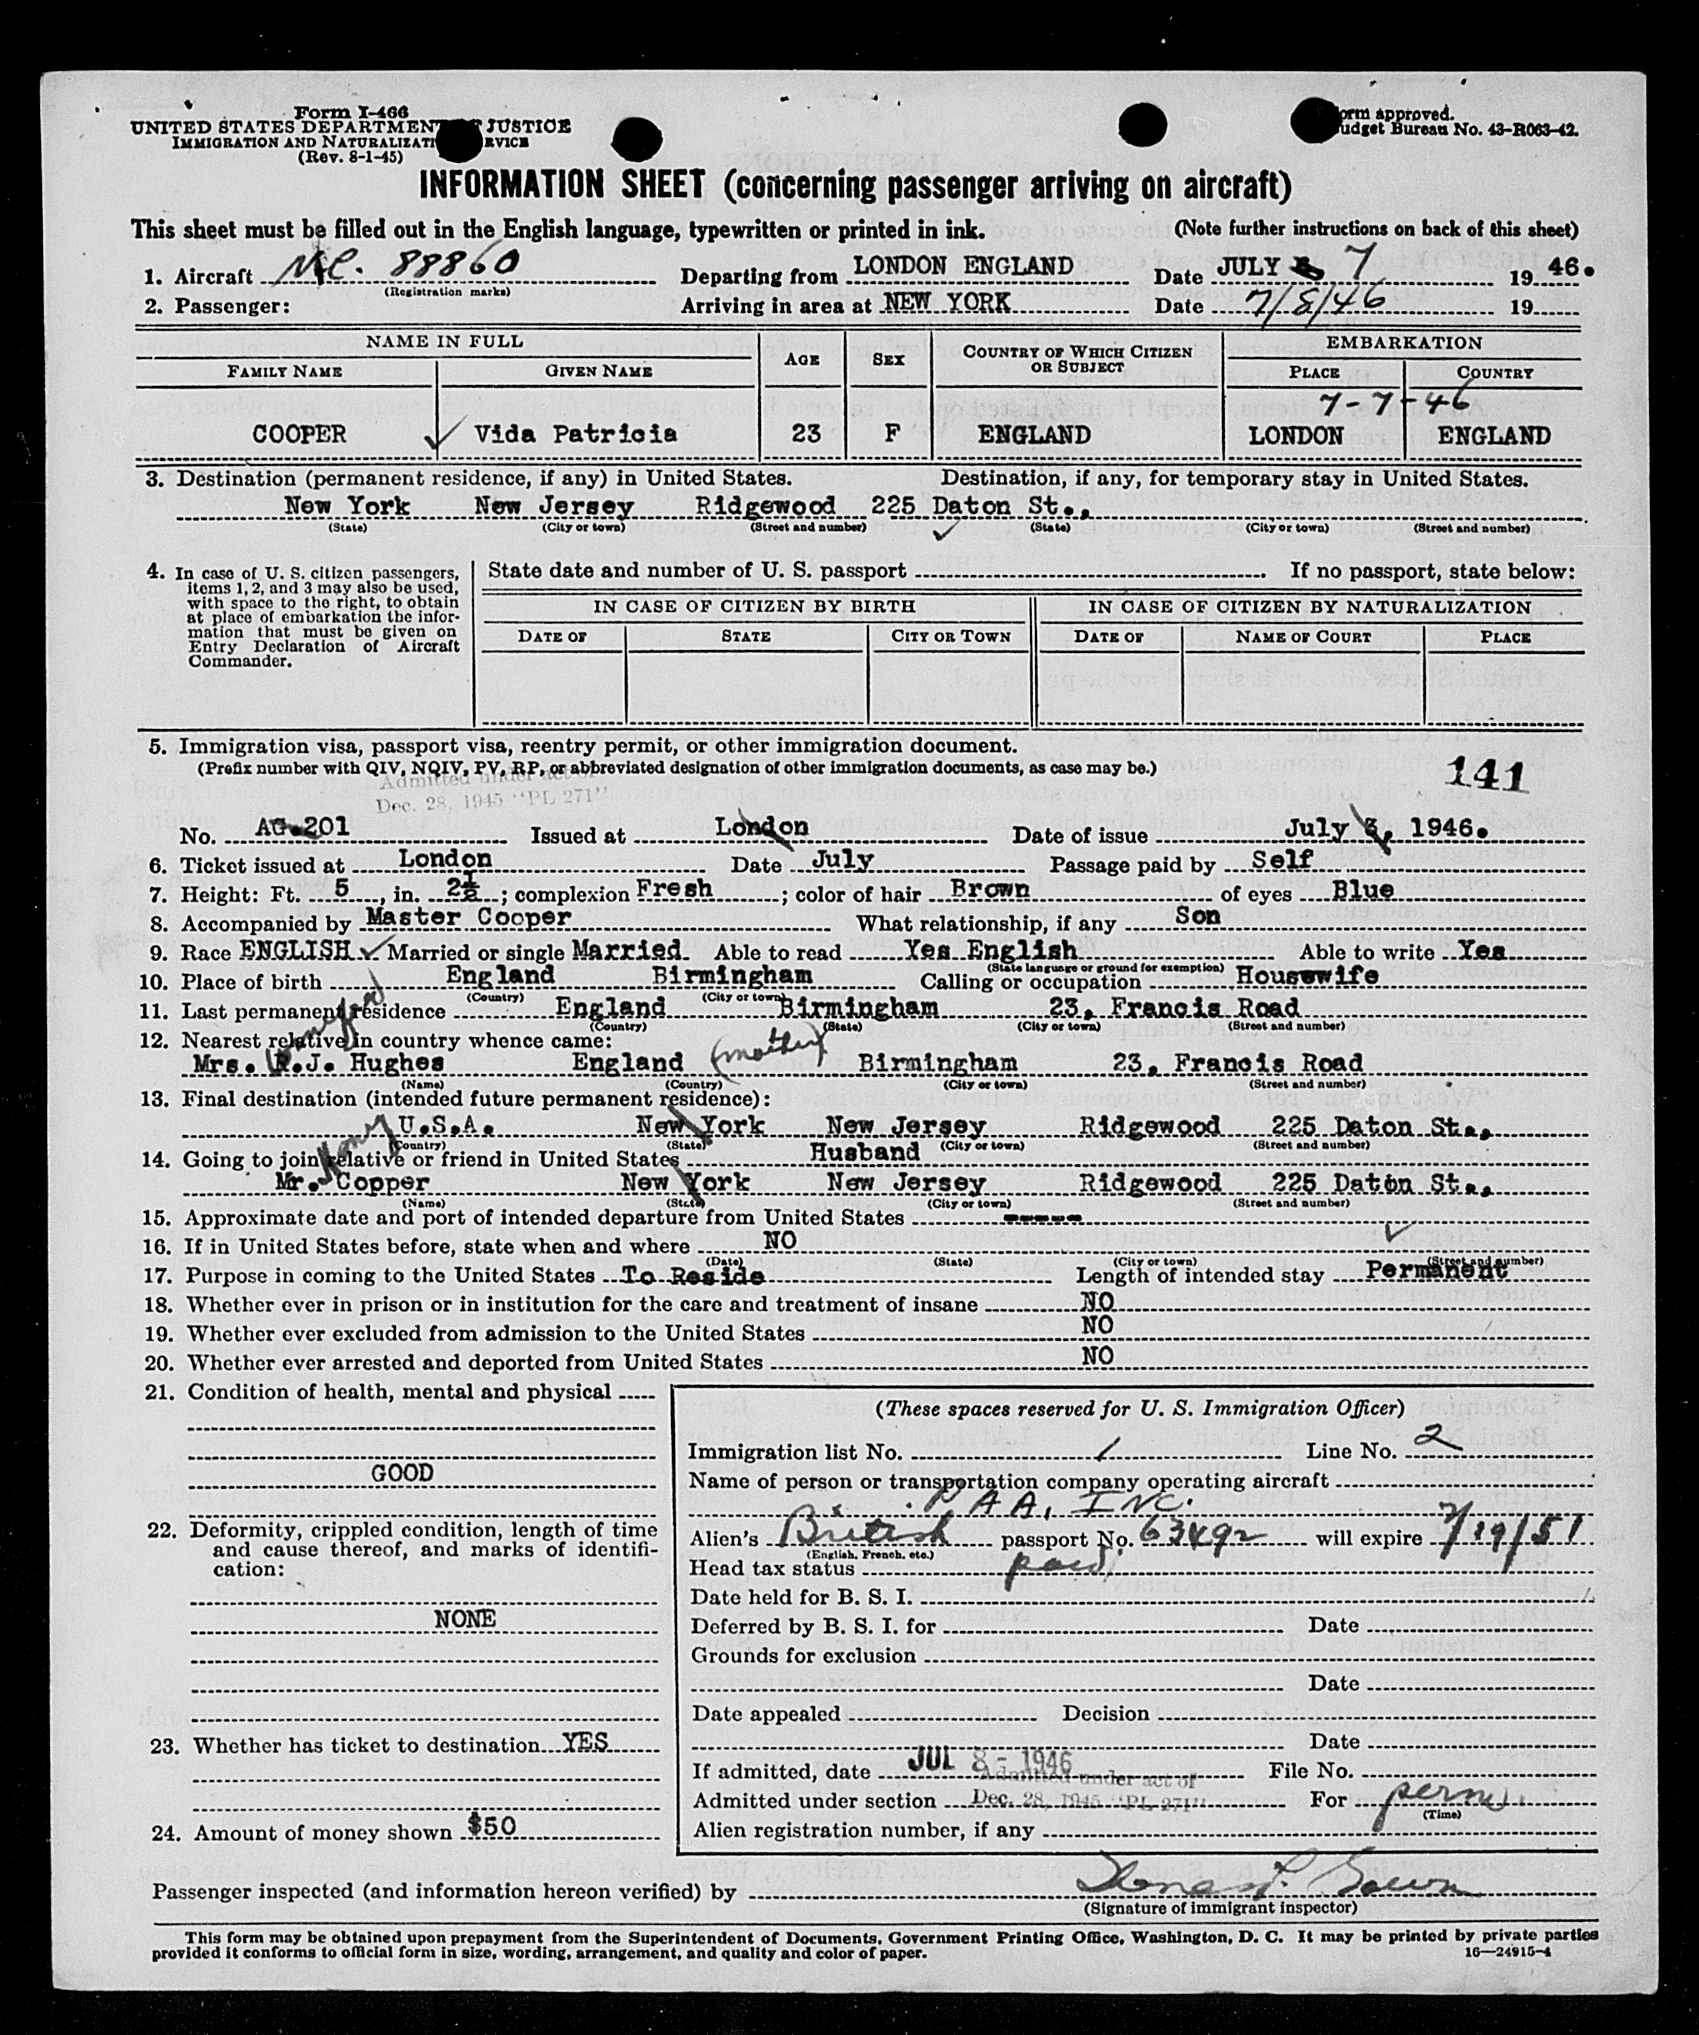 Form I-466
UNITED STATES DEPARTMENT JUSTICE
IMMIGRATION AND NATURALIZATI RVICE
(Rev. 8-1-45)
orm approved.
udget Bureau No. 43-R063-42.
INFORMATION SHEET (concerning passenger arriving on aircraft)
This sheet must be filled out in the English language, typewritten or printed in ink. (Note further instructions on back of this sheet)
1. Aircraft NC. 88860 Departing from LONDON ENGLAND Date JULY 7 19 46.
(Registration marks)
2. Passenger: Arriving in area at NEW YORK Date 7/8/46 19
NAME IN FULL AGE SEX COUNTRY OF WHICH CITIZEN OR SUBJECT EMBARKATION
FAMILY NAME GIVEN NAME PLACE COUNTRY
7-7-46
COOPER ✓ Vida Patricia 23 F ENGLAND LONDON ENGLAND
3. Destination (permanent residence, if any) in United States. Destination, if any, for temporary stay in United States.
New York New Jersey Ridgewood 225 Daton St.,
(State) (City or town) (Street and number) ✓ (State) (City or town) (Street and number)
4. In case of U. S. citizen passengers, items 1, 2, and 3 may also be used, with space to the right, to obtain at place of embarkation the information that must be given on Entry Declaration of Aircraft Commander.
State date and number of U. S. passport . If no passport, state below:
IN CASE OF CITIZEN BY BIRTH IN CASE OF CITIZEN BY NATURALIZATION
DATE OF STATE CITY OR TOWN DATE OF NAME OF COURT PLACE
5. Immigration visa, passport visa, reentry permit, or other immigration document.
(Prefix number with QIV, NQIV, PV, RP, or abbreviated designation of other immigration documents, as case may be.) 141
Admitted under act of
Dec. 28, 1945 "PL 271"
No. AG.201 Issued at London Date of issue July 3, 1946.
6. Ticket issued at London Date July Passage paid by Self
7. Height: Ft. 5, in. 2½; complexion Fresh; color of hair Brown of eyes Blue
8. Accompanied by Master Cooper What relationship, if any Son
9. Race ENGLISH ✓ Married or single Married Able to read Yes English Able to write Yes
(State language or ground for exemption)
10. Place of birth England Birmingham Calling or occupation Housewife
(Country) (City or town)
11. Last permanent residence England Birmingham 23, Francis Road
(Country) (State) (City or town) (Street and number)
12. Nearest relative in country whence came:
Mrs. R.J. Hughes England (mother) Birmingham 23, Francis Road
(Name) (Country) (City or town) (Street and number)
13. Final destination (intended future permanent residence):
U.S.A. New York New Jersey Ridgewood 225 Daton St.,
(Country) (State) (City or town) (Street and number)
14. Going to join relative or friend in United States Husband
Mr. Copper New York New Jersey Ridgewood 225 Daton St.,
(Name) (State) (City or town) (Street and number)
15. Approximate date and port of intended departure from United States -----
16. If in United States before, state when and where NO ✓
(Date) (State) (City or town) (Street and number)
17. Purpose in coming to the United States To Reside Length of intended stay Permanent
18. Whether ever in prison or in institution for the care and treatment of insane NO
19. Whether ever excluded from admission to the United States NO
20. Whether ever arrested and deported from United States NO
21. Condition of health, mental and physical
GOOD
22. Deformity, crippled condition, length of time and cause thereof, and marks of identification:
NONE
23. Whether has ticket to destination YES
24. Amount of money shown $50
(These spaces reserved for U. S. Immigration Officer)
Immigration list No. 1 Line No. 2
Name of person or transportation company operating aircraft
P A A, INC.
Alien's British passport No. 63492 will expire 7/19/51
(English, French, etc.)
Head tax status paid
Date held for B. S. I.
Deferred by B. S. I. for Date
Grounds for exclusion
Date
Date appealed Decision
Date
If admitted, date JUL 8 - 1946 File No.
Admitted under act of
Admitted under section Dec. 28, 1945 "PL 271" For perm.
(Time)
Alien registration number, if any
Passenger inspected (and information hereon verified) by
(Signature of immigrant inspector)
This form may be obtained upon prepayment from the Superintendent of Documents, Government Printing Office, Washington, D. C. It may be printed by private parties
provided it conforms to official form in size, wording, arrangement, and quality and color of paper. 16—24915-4